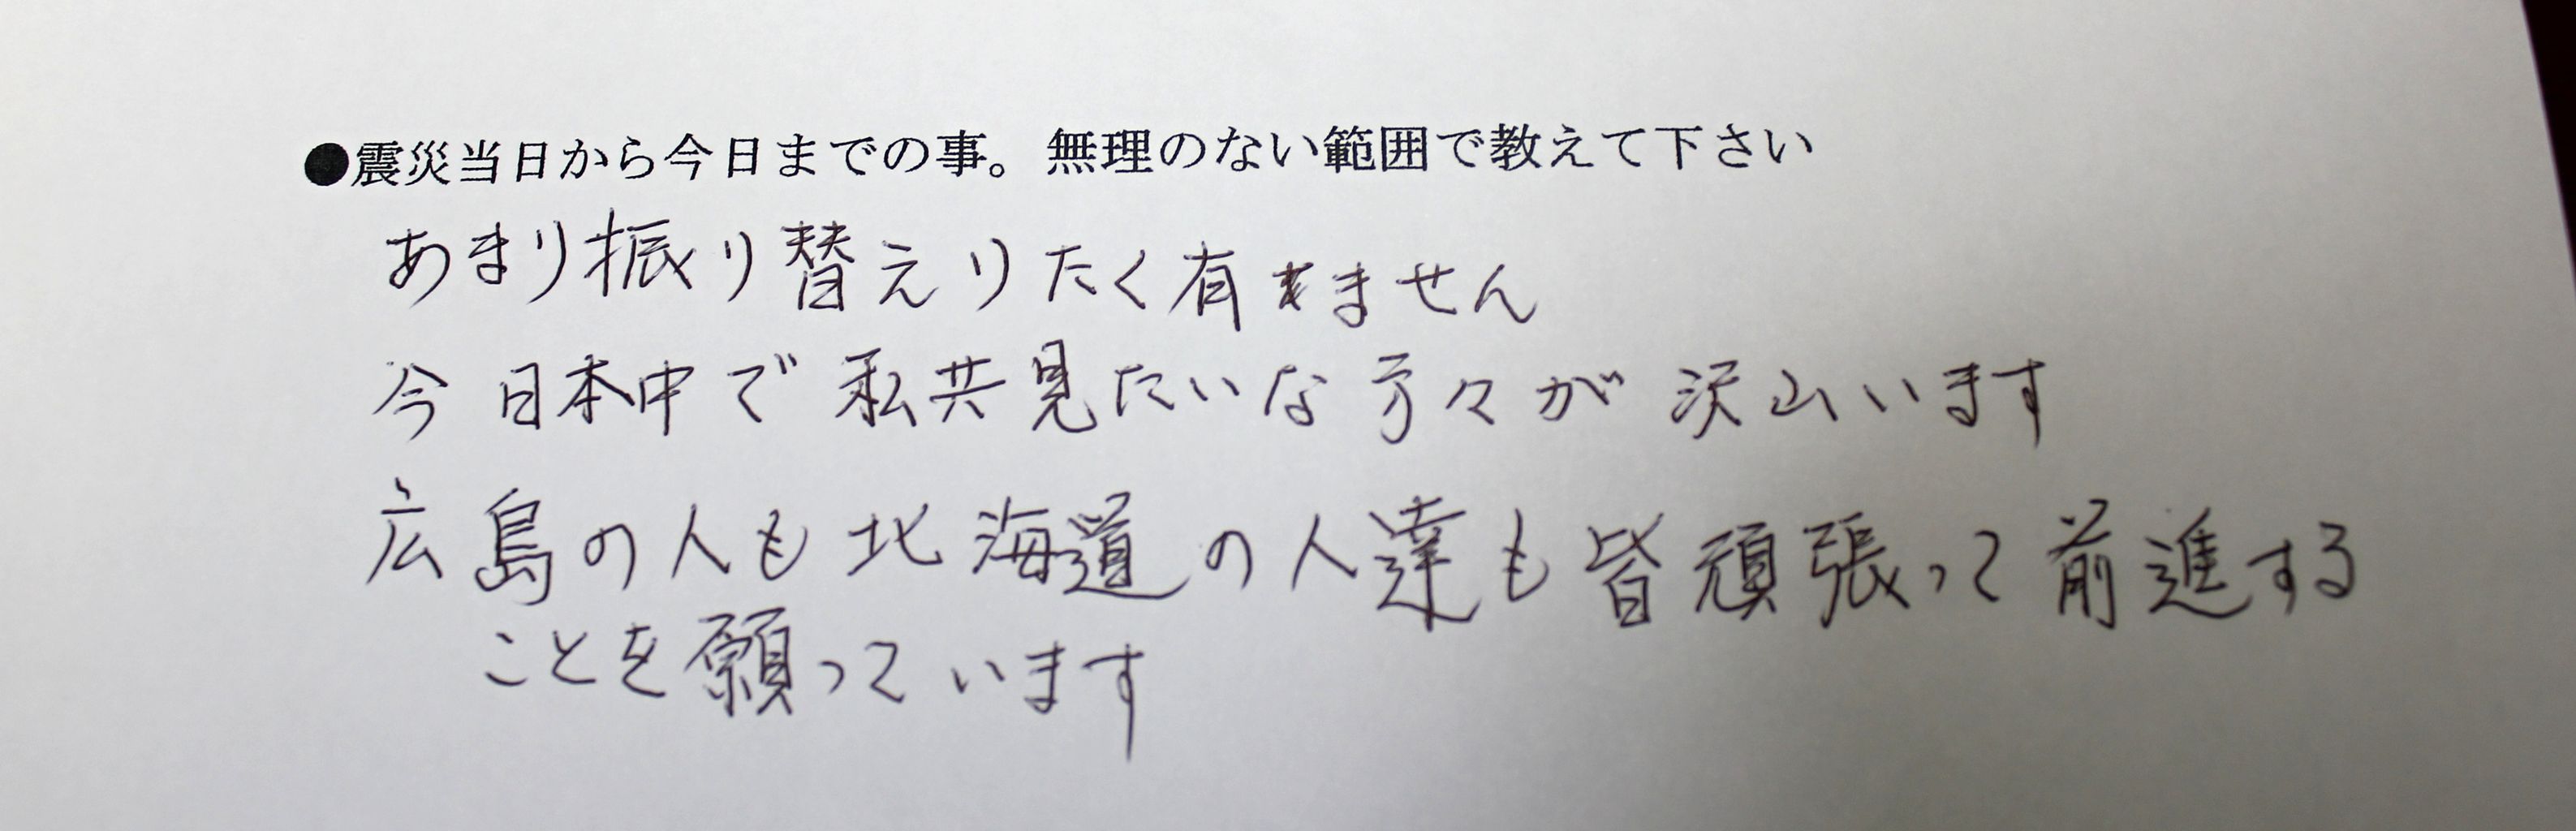 ●震災当日から今日までの事。無理のない範囲で教えて下さい
あまり振り替えりたく有ません
今日本中で私共見たいな方々が沢山います
広島の人も北海道の人達も皆頑張って前進する
ことを願っています